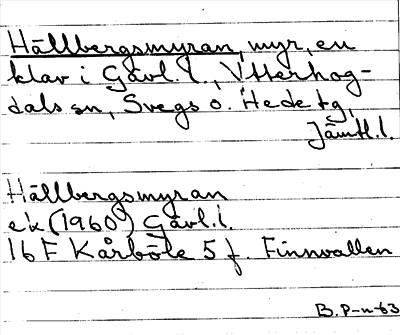 Hällbergsmyran, myr, en
klav i Gävl. l., Ytterhog-
dals sn, Svegs o. Hede tg,
Jämtl. l.
Hällbergsmyran
ek (1960) Gävl. l.
16 F Kårböle 5 f. Finnvallen
B. P-n -63